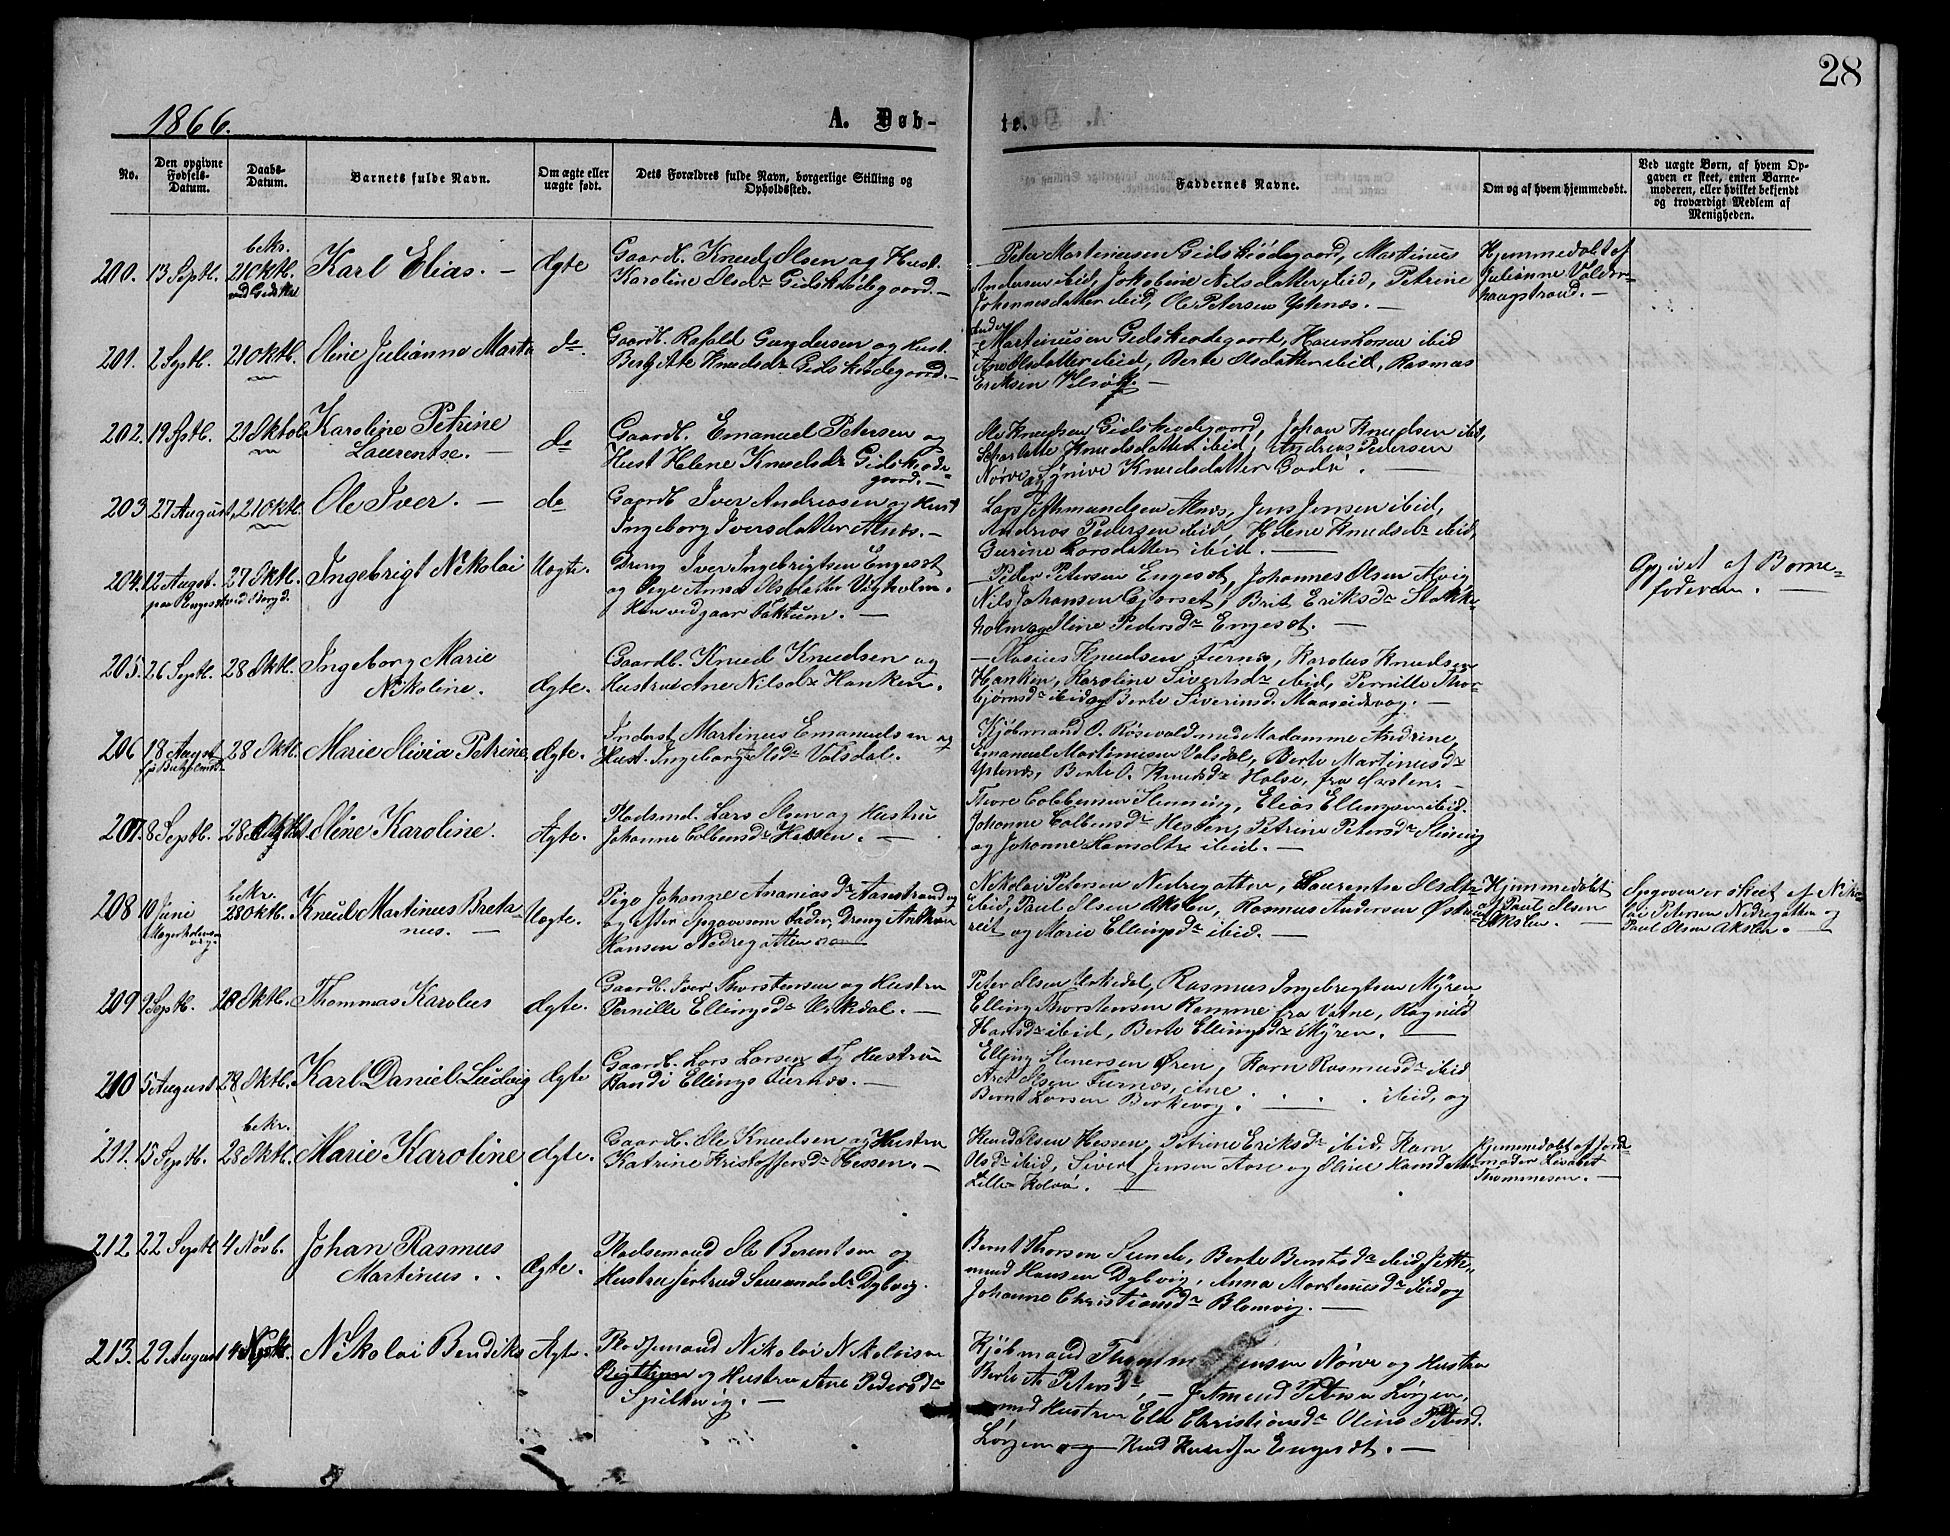 28
1866.
A. Døb-
te.
No.
Den opgivne Fødsels-Datum.
Daabs-Datum.
Barnets fulde Navn.
Om ægte eller uægte født.
Dets Forældres fulde Navn, borgerlige Stilling og Opholdssted.
Faddernes Navne.
Om og af hvem hjemmedøbt.
Ved uægte Børn, af hvem Op-
gaven er skeet, enten Barne-
moderen, eller hvilket bekjendt
og troværdigt Medlem af
Menigheden.
200. 13 Septb. bekr. 21 Oktb. Karl Elias. — Ægte
Gaardb. Knud Olsen og Hust.
Karoline Olsdr Gidskeødegaard. —
Peter Martinusen Gidskeødegaard, Martinus
Andersen ibid, Jakobine Nilsdatter ibid, Petrine
Johannesdatter ibid, Ole Petersen Ystenæs. —
Hjemmedøbt af
Julianne Valder-
haugstrand. —
201. 2 Septb. 21 Oktb. Oline Julianne Marta do.
Gaardb. Rafald Gundersen og Hust.
Bergitte Knudsdr Gidskeødegaard. —
Martinusen Gidskeødegaard, Hans Larsen ibid
Ane Olsdatter ibid, Berte Olsdatter ibid, Rasmus
Eriksen
202. 19 Sptb. 21 Oktob. Karoline Petrine
Laurentse. — do
Gaardb. Emanuel Petersen og
Hust Helene Knudsdr Gidskeøde-
gaard. —
Ole Knudsen Gidskeødegaard, Johan Knudsen ibid,
Scharlotte Knudsdatter ibid, Andreas Pedersen
Nørve og Synive Knudsdatter Godø. —
203 27 August, 21 Oktb. Ole Iver. — do
Gaardb Iver Andreasen og Hust
Ingeborg Iversdatter Alnæs. —
Lars Jethmundsen Alnæs, Jens Jensen ibid,
Andreas Pedersen ibid, Helene Knudsdr ibid,
Gurine Larsdatter ibid. —
204. 12 Augst. 27 Oktb. Ingebrigt Nikolai Uægte.
paa Engeset ved Borgd.
Dreng Iver Ingebrigtsen Engeset
og Pige Anna Olsdatter Vegholm.
Han vedgaar Faktum. —
— Peder Petersen Engeset, Johannes Olsen Alvig
Nils Johansen Gjørset, Brit Eriksdr Stokke-
holm og Oline Pedersdr Engeset. —
Opgivet af Barne-
faderen. —
205. 26 Septb. 28 Oktb. Ingeborg Marie
Nikoline. Ægte.
Gaardb. Knud Knudsen og
Hustrue Ane Nilsdr Hanken.
— Knudsen Furnæs, Karolus Knudsen
Hanken, Karoline Sivertsdr ibid, Pernille Thor-
bjørnsdr ibid og Berte Siverinsd. Maaseidvaag. —
206 18 August 28 Oktb. Marie Olivia Petrine Ægte.
Inderst Martinus Emanuelsen og
Hust. Ingeborg Olsdr Volsdal.
Kjøbmand O. Røsevald med Madamme Andrine,
Emanuel Martinusen Volsdal, Berte Martinusdr
Ystenæs, Berte O. Knudsdr Holse, fra Ørsten. —
207. 8 Septb. 28 Oline Karoline. Ægte.
Pladsmd. Lars Olsen og Hustrue
Johanne Colbensdr Hessen. —
Thore Colbensen Slinning, Elias Ellingsen ibid.
Johanne Colbensdr Hessen, Petrine Petersdr Slinning
og Johanne Hansdtr ibid. —
208 10 Juni bekr. 28 Oktb. Knud Martinus Breta
nus. — Uægte.
Pige Johanne Ananiasdr Aarstrand og
og efter Opgav som Fader, Dreng Anthon
Hansen Nedregotten
Nikolai Petersen Nedregotten, Laurentse Olsdtr
ibid, Paul Olsen Akslen, Rasmus Andersen
og Marie Ellingsdr ibid. —
Hjemmedøbt
af Paul Olsen
Akslen. —
Opgaven er skeet af Niko-
lai Petersen Nedregotten og
Paul Olsen Akslen. —
209 9 Septb. 28 Oktb. Thommas Karolus Ægte.
Gaardb. Iver Thorstensen og Hustrue
Pernille Ellingsdr Urkedal. —
Peter Olsen Urkedal, Rasmus Ingebregtsen Myren
Elling Thorstensen Romme fra Vatne, Ragnild
Hansdr ibid, Berte Ellingsdr Myren. —
210 5 August 28 Oktb. Karl Daniel Ludvig Ægte
Gaardb. Lars Larsen og Hustrue
Randi Ellings Furnæs. —
Elling Stenersen Øren, Karn Rasmusdr ibid
Aret Olsen Furnæs, Ane . . . . ibid, og
Bernt Larsen Berkevog.
211. 15 Septb. bekr. 28 Oktb. Marie Karoline Ægte.
Gaardb. Ole Knudsen og Hustrue
Katrine Kristoffersdr Hessen. —
Knud Olsen Hessen, Petrine Eriksdr ibid, Karn
Olsdr ibid, Sivert Jensen Aase og Oline Hansd
Lille Kalvø. —
Hjemmedøbt af Jord-
moder Lovise
Thommesen. —
212. 22 Septb 4 Novb. Johan Rasmus
Martinus. Ægte.
Pladsemand Ole Berentsen og
Hustrue Jertrud Dybvig.
Bernt Thorsen Sunde, Berte Berntsdr ibid, Jeth-
mund Hansen Dybvig, Anna Martinusdr ibid og
Johanne Christiansdr Blomvig. —
213. 29 August 4 Nikolai Bendiks Ægte.
Pladsemand Nikolai Nikolaisen
og Hustrue Ane Pedersdr
Spilkevig. —
Kjøbmand Nørve og Hustrue
Berte A. Petersdr, — Jetmund Petersen Lørgen,
med Hustrue Else Christiansdr Oline Petersd.
Lørgen og Knud Knudsen Engeset. —